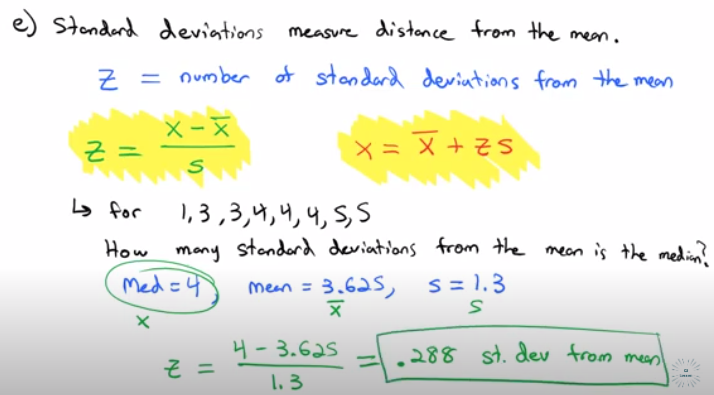 e) Standard deviations measure distance from the mean.
Z = number of standard deviations from the mean
z = (x - x̄) / s
x = x̄ + z s
↳ for 1, 3, 3, 4, 4, 4, 5, 5
How many standard deviations from the mean is the median?
Med = 4, mean = 3.625, s = 1.3
x x̄ s
z = (4 - 3.625) / 1.3 = .288 st. dev from mean